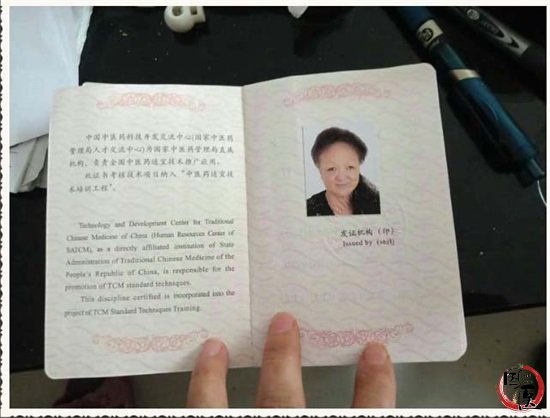 中国中医药科技开发交流中心(国家中医药
管理局人才交流中心)为国家中医药管理局直属
机构，负责全国中医药适宜技术推广应用。
此证书考核技术项目纳入“中医药适宜技
术培训工程”。
Technology and Development Center for Traditional
Chinese Medicine of China (Human Resources Center of
SATCM), as a directly affiliated institution of State
Administration of Traditional Chinese Medicine of the
People's Republic of China, is responsible for the
promotion of TCM standard techniques.
This discipline certified is incorporated into the
project of TCM Standard Techniques Training.
发证机构（印）
Issued by